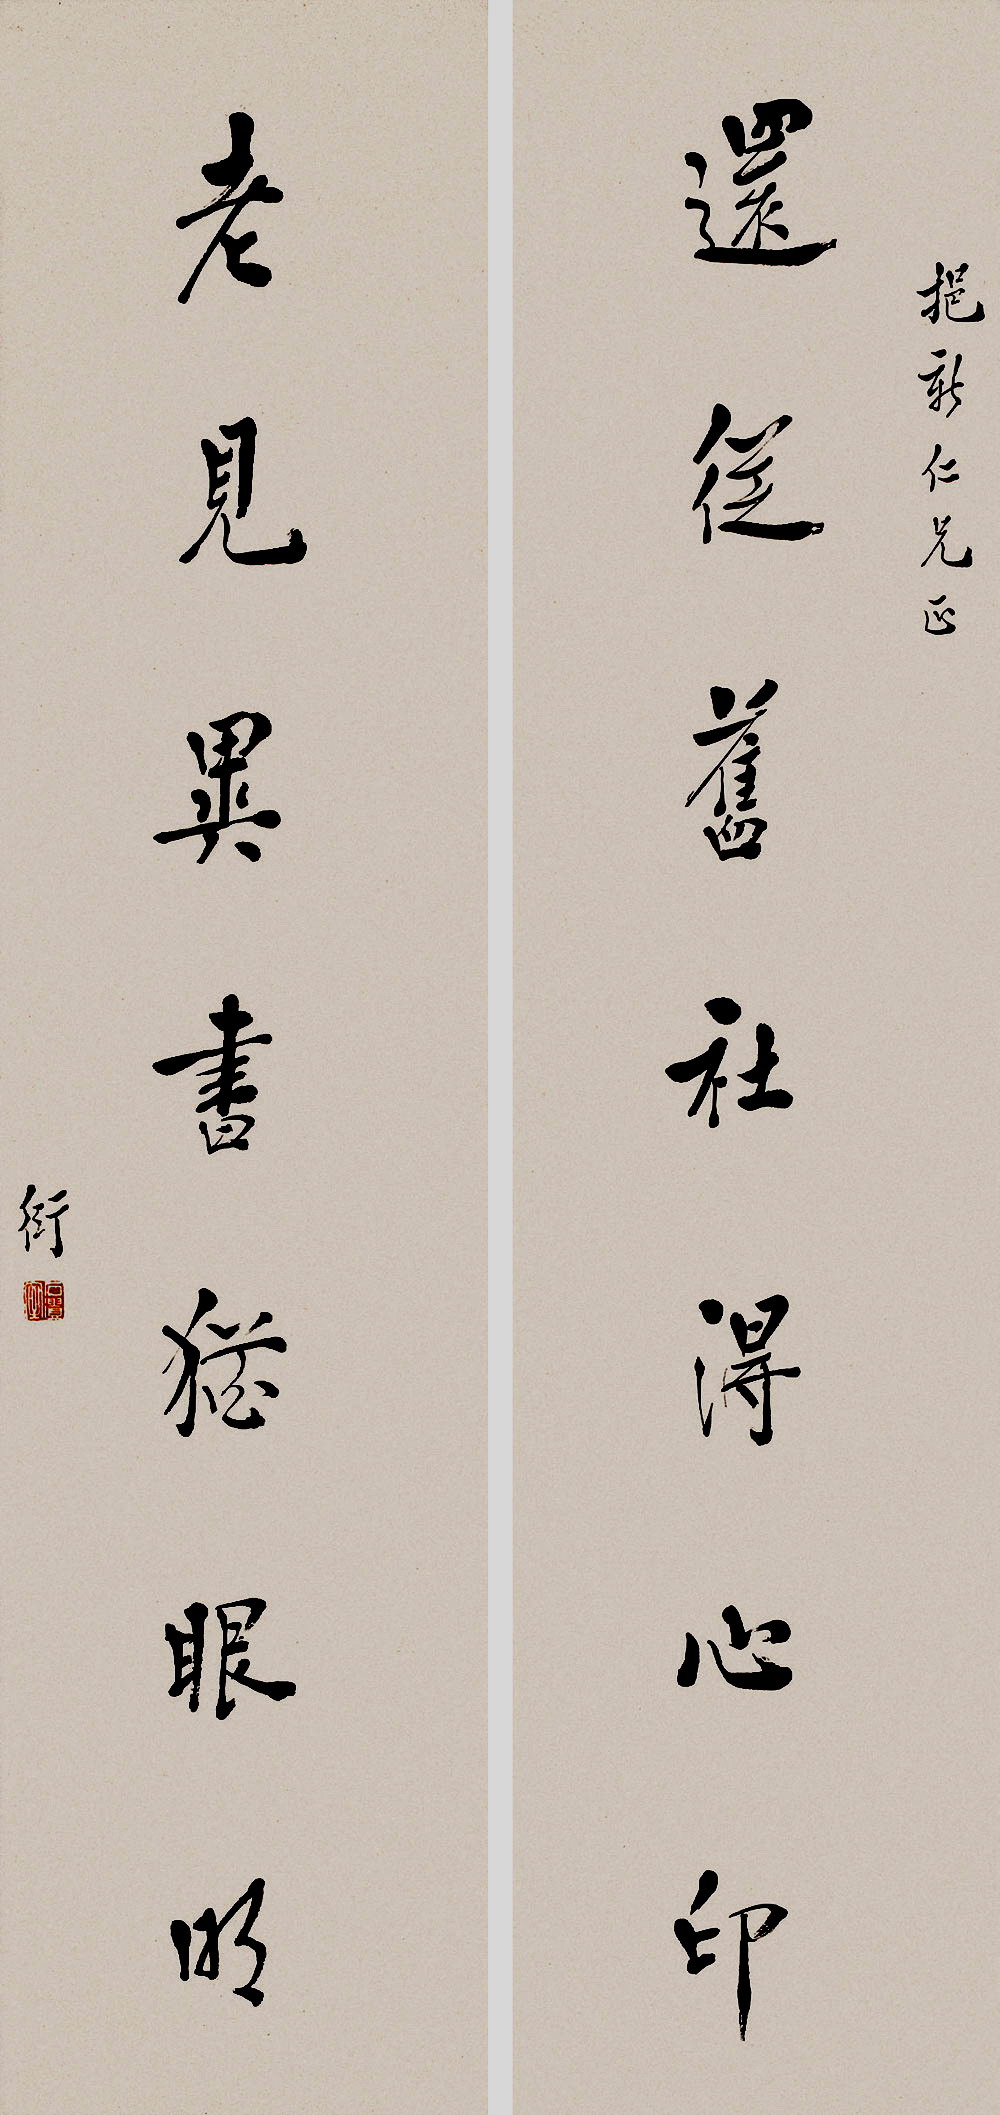 挹新仁兄正
還從舊社得心印
老見異書猶眼明
衍